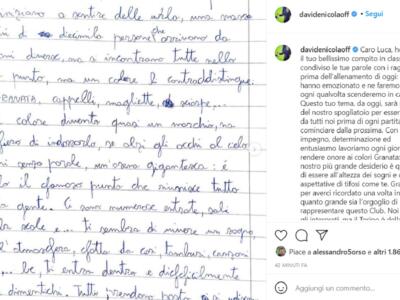 iniziano a sentire delle urla, una massa
di diecimila persone che arrivano da
diverse, ma a incontrano tutte nello
punto, ma un colore li contraddistingue:
GRANATA, cappelli, magliette, sciarpe...
colore diventa quasi un marchio, na
fiero di indossarlo, se alzi gli occhi al celo
senza parole, un'insegna gigantesca: é
il famoso punto che riunisce tutto
gente. Ci sono numerose entrate, sali
scale e... ti sembra di vivere un sogno,
l'atmosfera, fatta da cori, tamburi, canzoni
be, ti entra dentro e difficilmente
dimentichi. Tutti prendono posto
davidenicolaoff • Segui
davidenicolaoff Caro Luca, h
il tuo bellissimo compito in class
condiviso le tue parole con i rag
prima dell'allenamento di oggi:
hanno emozionato e ne faremo
ogni qualvolta scenderemo in ca
Questo tuo tema, da oggi, sarà
del nostro spogliatoio per esser
da tutti noi prima di ogni partita
cominciare dalla prossima. Con
impegno, determinazione ed
entusiasmo lavoriamo ogni gior
rendere onore ai colori Granata:
nostro più grande desiderio è q
di essere all'altezza dei sogni e
aspettative di tifosi come te. Gra
per averci ricordato una volta in
quanto grande sia l'orgoglio di
rappresentare questo Club. Noi
Piace a alessandroSorso e altri 1.86
42 MINUTI FA